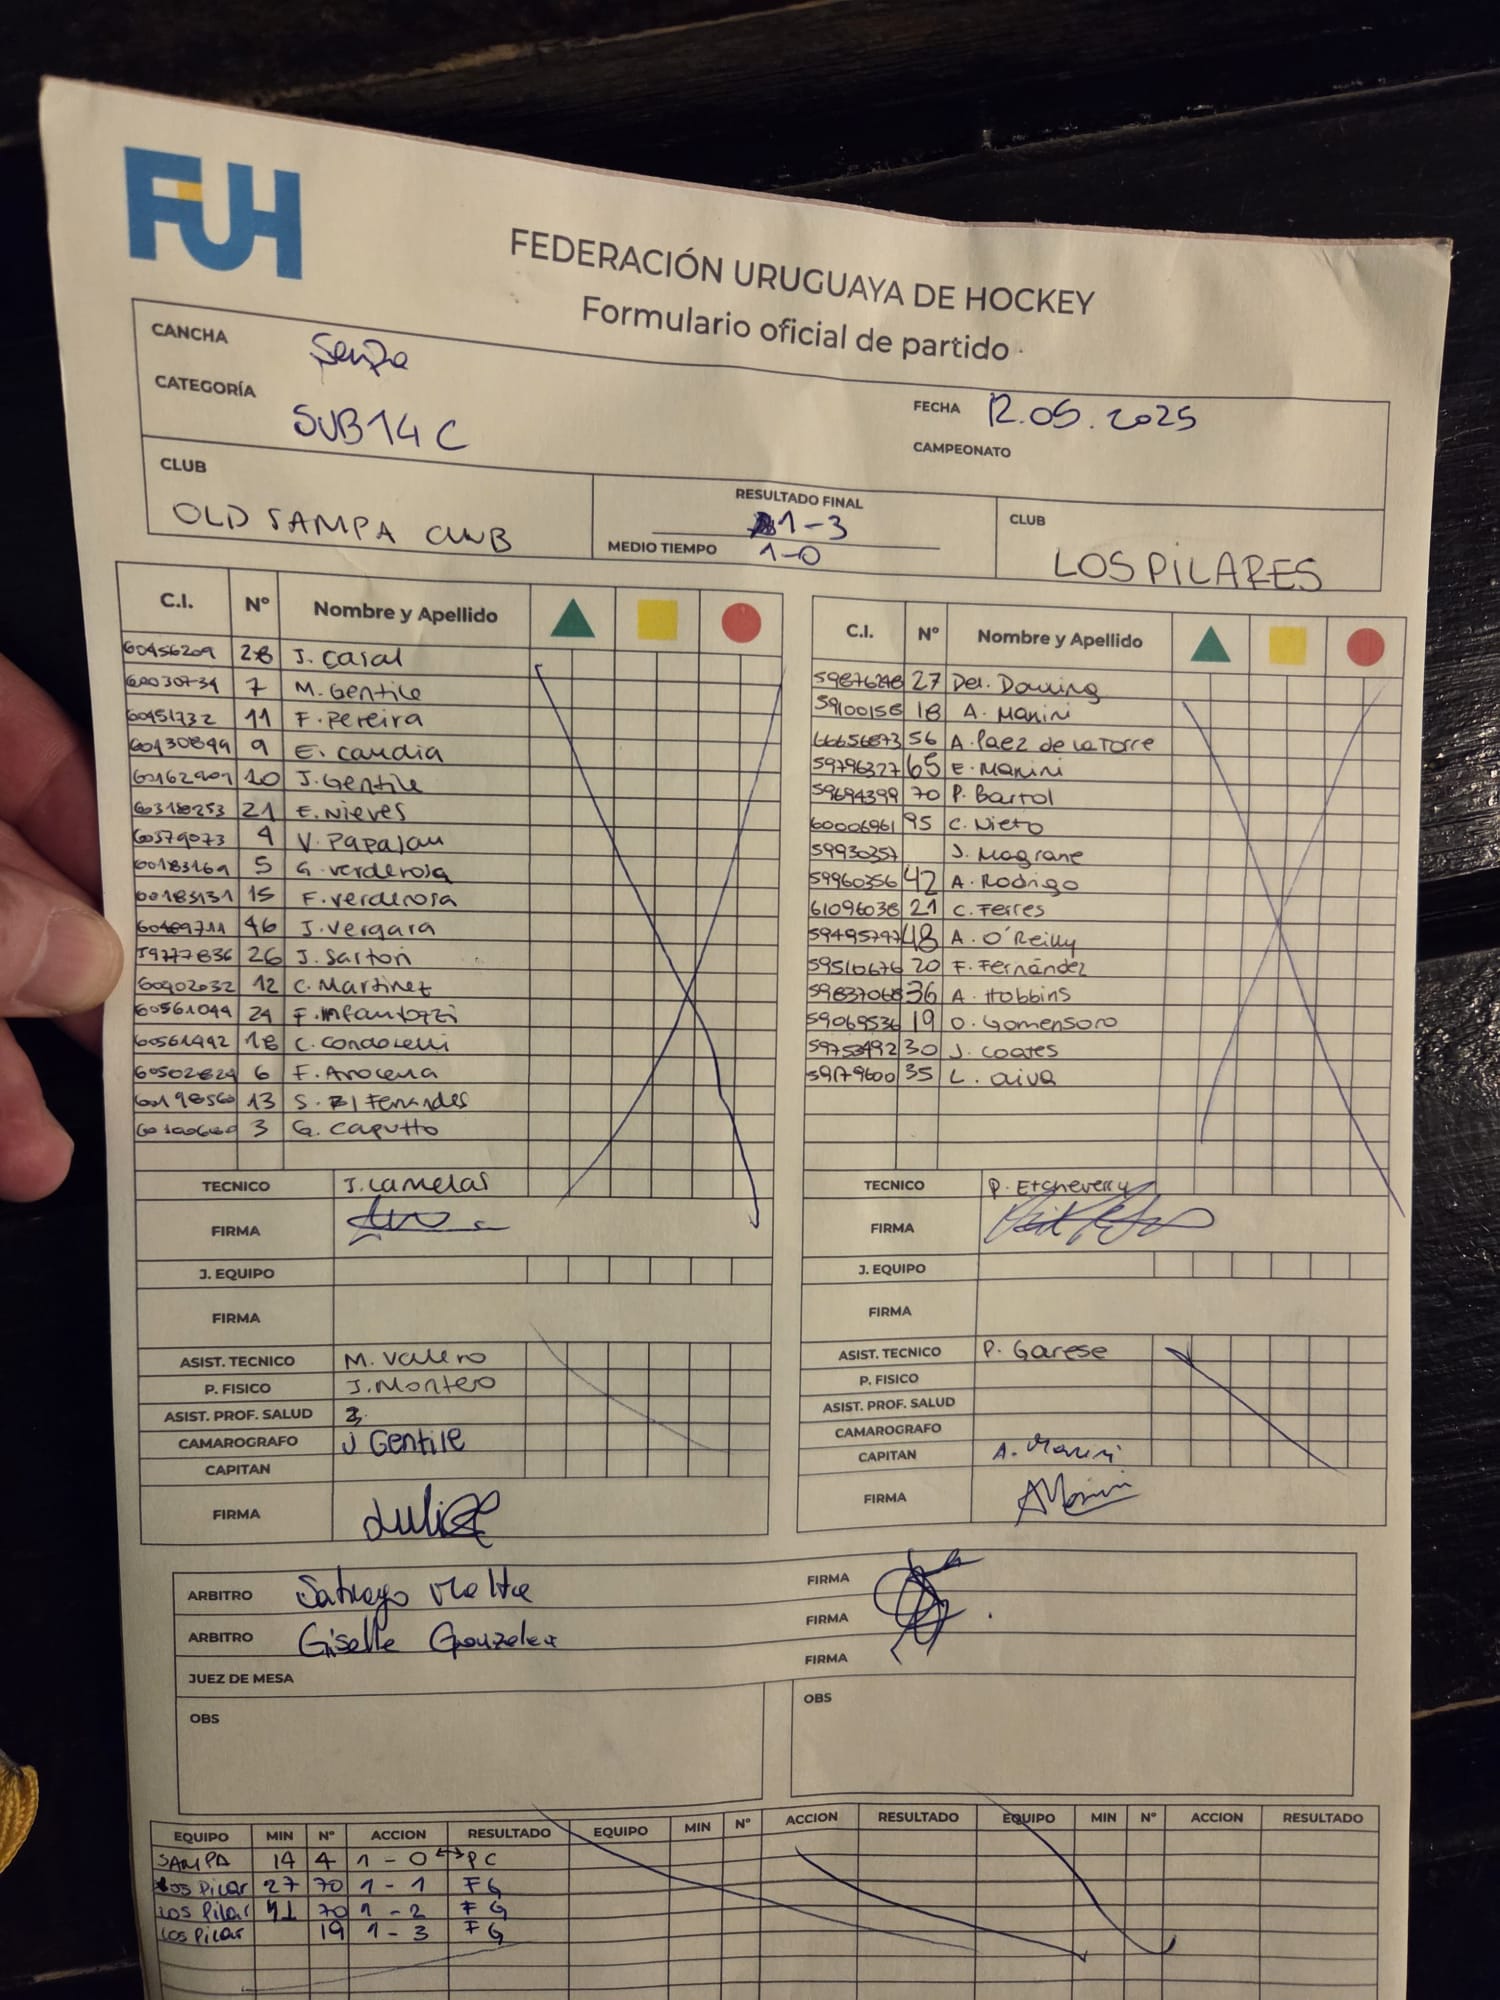 FUH
FEDERACIÓN URUGUAYA DE HOCKEY
Formulario oficial de partido
CANCHA
CATEGORÍA SUB14 C
FECHA 12.05.2025
CAMPEONATO
CLUB OLD SAMPA CLUB
RESULTADO FINAL 1-3
MEDIO TIEMPO 1-0
CLUB LOS PILARES
C.I. Nº Nombre y Apellido
60456209 28 J. Casal
7 M. Gentile
60451732 11 F. Pereira
60130899 9 E. Candia
10 J. Gentile
60318253 21 E. Nieves
60579073 4 V. Papajau
60183169 5 G. Verderosa
15 F. Verderosa
46 J. Vergara
59777836 26 J. Sartori
60902032 12 C. Martinez
60561049 24 F. Infantozzi
60561492 18 C.
60502824 6 F. Arocena
60198560 13 S. Fernandes
3 G. Caputto
TECNICO J. Lamelas
FIRMA
J. EQUIPO
FIRMA
ASIST. TECNICO M. Valero
P. FISICO J. Montero
ASIST. PROF. SALUD
CAMAROGRAFO J Gentile
CAPITAN
FIRMA
C.I. Nº Nombre y Apellido
27 Del.
59100158 18 A. Manini
66656873 56 A. Paez de la Torre
59796327 65 E. Manini
59694399 70 P. Bartol
60006961 95 C. Nieto
59930357 J. Magrane
59960356 42 A. Rodrigo
61096038 21 C. Ferres
59495797 48 A. O'Reilly
59510676 20 F. Fernández
59837068 36 A. Hobbins
59069536 19 O. Gomensoro
59753492 30 J. Coates
59179600 35 L. Oiva
TECNICO P. Etcheverry
FIRMA
J. EQUIPO
FIRMA
ASIST. TECNICO P. Garese
P. FISICO
ASIST. PROF. SALUD
CAMAROGRAFO
CAPITAN A. Manini
FIRMA AManini
ARBITRO FIRMA
ARBITRO Giselle Gonzalez FIRMA
JUEZ DE MESA FIRMA
OBS
OBS
EQUIPO MIN Nº ACCION RESULTADO EQUIPO MIN Nº ACCION RESULTADO EQUIPO MIN Nº ACCION RESULTADO
SAMPA 14 4 1 - 0 ↔ PC
Los Pilar 27 70 1 - 1 FG
Los Pilar 41 70 1 - 2 FG
Los Pilar 19 1 - 3 FG